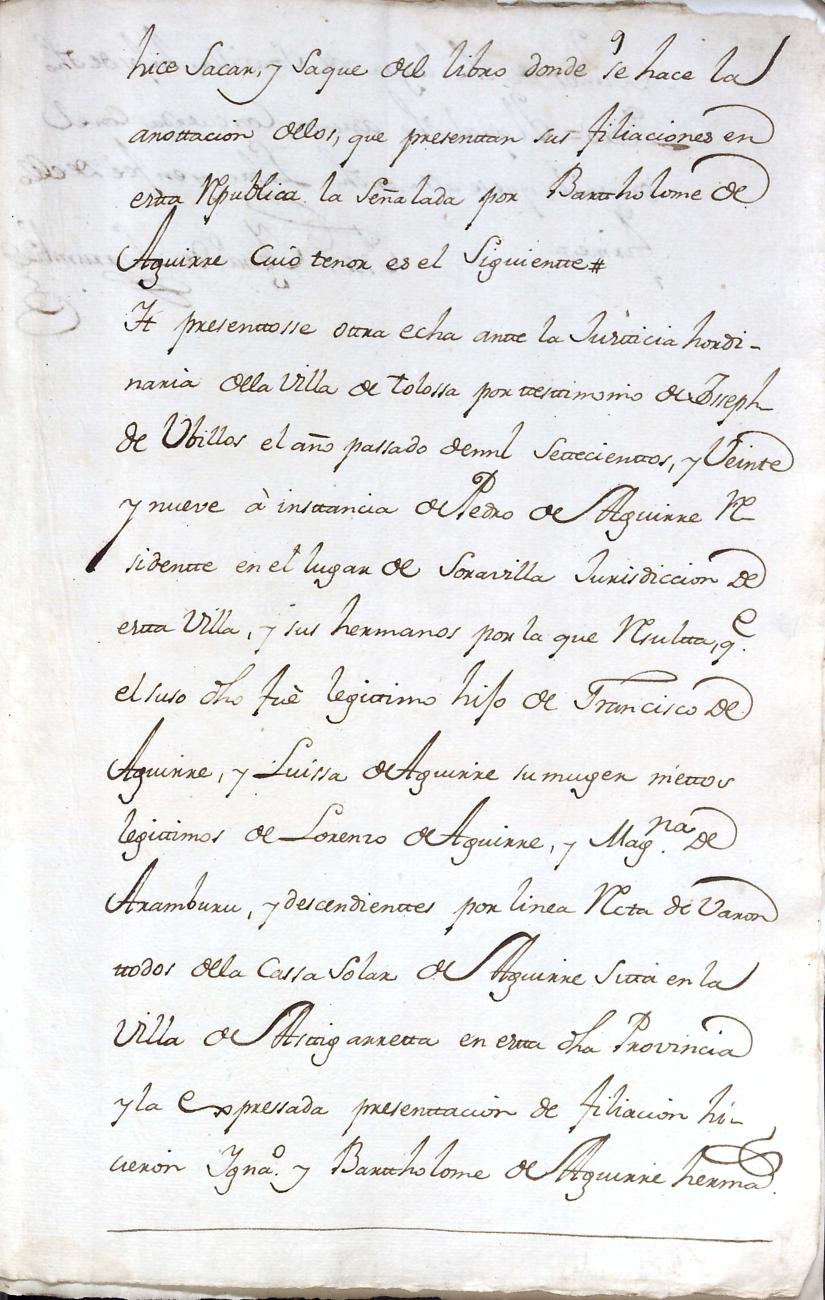 hice Sacar, y Saque del libro donde se hace la
anottacion dellos, que presenttan sus filiaciones en
estta Republica la Señalada por Barttholome de
Aguirre Cuio tenor es el Siguientte#
Itt presenttosse ottra echa antte la Justticia hordi-
naria della Villa de tolossa por testtimonio de Joseph
de Ubillos el año passado de mil Settecienttos, y Veinte
y nueve à insttancia de Pedro de Aguirre Re
sidentte en el lugar de Soravilla Jurisdiccion de
estta Villa, y sus hermanos por la que Resultta, q.e
el suso dho fuè legittimo hijo de Francisco de
Aguirre, y Luissa de Aguirre su muger niettos
legittimos de Lorenzo de Aguirre, y Mag.na de
Aramburu, y descendienttes por linea Recta de Varon
ttodos della Cassa Solar de Aguirre Sitta en la
Villa de Asttigarretta en estta dha Provincia
y la expressada presenttacion de filiacion hi-
cieron Igna.o y Barttholome de Aguirre herma.